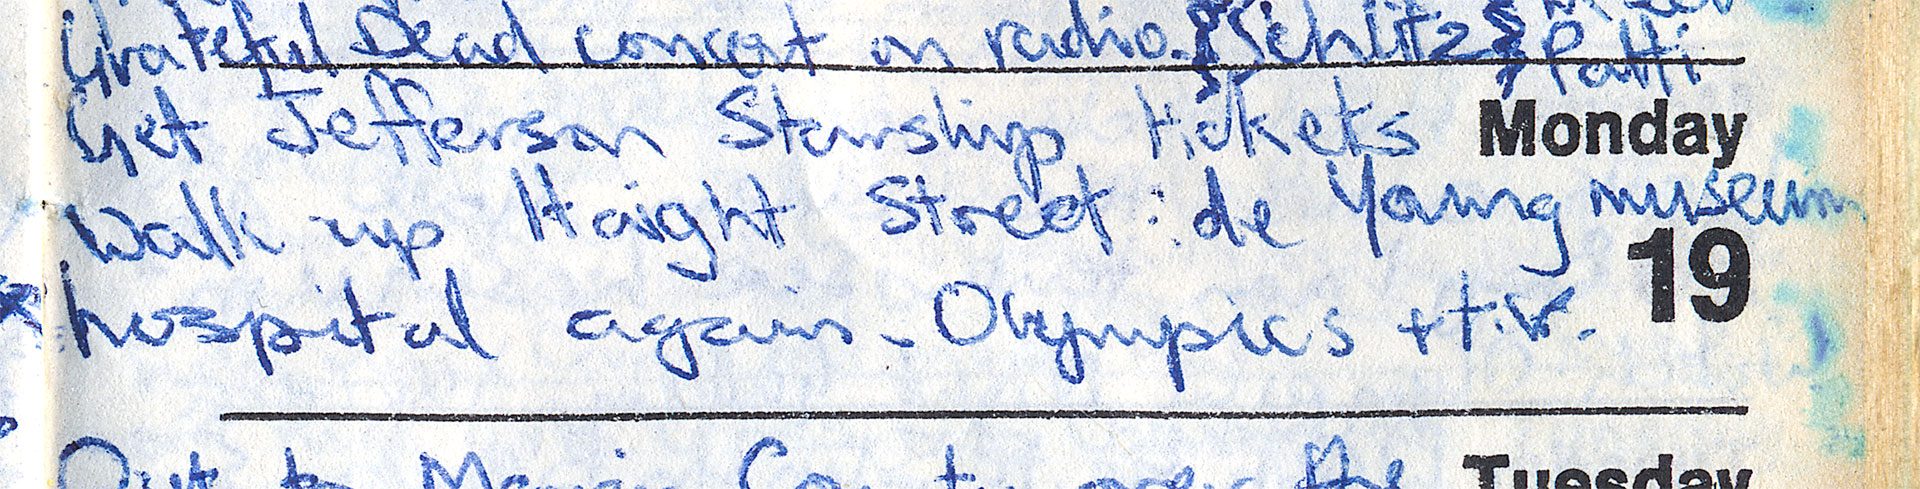 Grateful Dead concert on radio. Schlitz Patti
Get Jefferson Starship tickets
Monday
Walk up Haight Street : de Young museum
19
hospital again - Olympics + t.v.
Out to Marin County over the
Tuesday